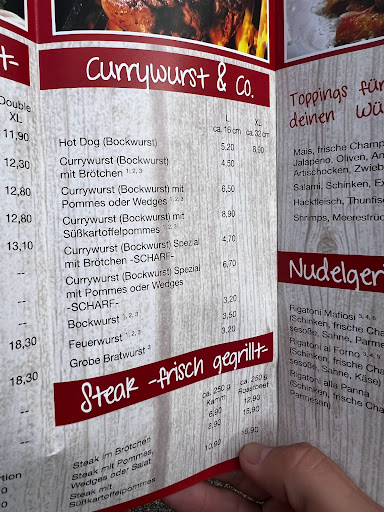 Double
XL
11,90
12,30
12,80
12,80
13,10
--
--
18,30
--
18,30
--
Currywurst & Co.
L XL
ca. 16 cm ca. 32 cm
Hot Dog (Bockwurst) 5,20 8,90
Currywurst (Bockwurst)
mit Brötchen 1, 2, 3 4,50
Currywurst (Bockwurst) mit
Pommes oder Wedges 1, 2, 3 6,50
Currywurst (Bockwurst) mit
Süßkartoffelpommes 2, 3 8,90
Currywurst (Bockwurst) Spezial
mit Brötchen -SCHARF- 4,70
Currywurst (Bockwurst) Spezial
mit Pommes oder Wedges
-SCHARF- 6,70
Bockwurst 1, 2, 3 3,20
Feuerwurst 1, 2, 3 3,50
Grobe Bratwurst 3 3,20
Steak -frisch gegrillt-
ca. 250 g ca. 250 g
Kamm Roastbeef
Steak im Brötchen 6,90 12,90
Steak mit Pommes,
Wedges oder Salat 8,90 15,90
Steak mit
Süßkartoffelpommes 10,90 16,90
Toppings für
deinen
Mais, frische Champ
Jalapeño, Oliven, An
Artischocken, Zwieb
Salami, Schinken, Ex
Hackfleisch, Thunfisc
Shrimps, Meeresfrüc
Nudelger
Rigatoni Mafiosi 3, 4, 6
(Schinken, frische Cha
sesoße, Sahne, Parme
Rigatoni al Forno 3, 4, 6
(Schinken, frische Cha
sesoße, Sahne, Käse)
Rigatoni alla Panna
(Schinken, frische Cha
Parmesan)